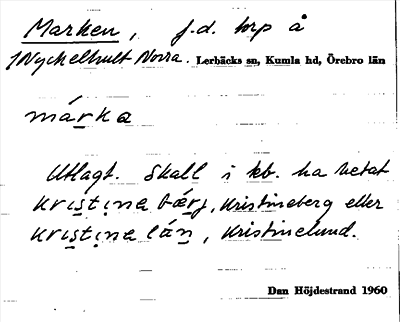 Marken, f.d. torp å
1 Nyckelhult Norra. Lerbäcks sn, Kumla hd, Örebro län
márka
Utlagt. Skall i kb. ha hetat
kristina bärj, Kristineberg eller
kristina lán, Kristinelund.
Dan Höjdestrand 1960